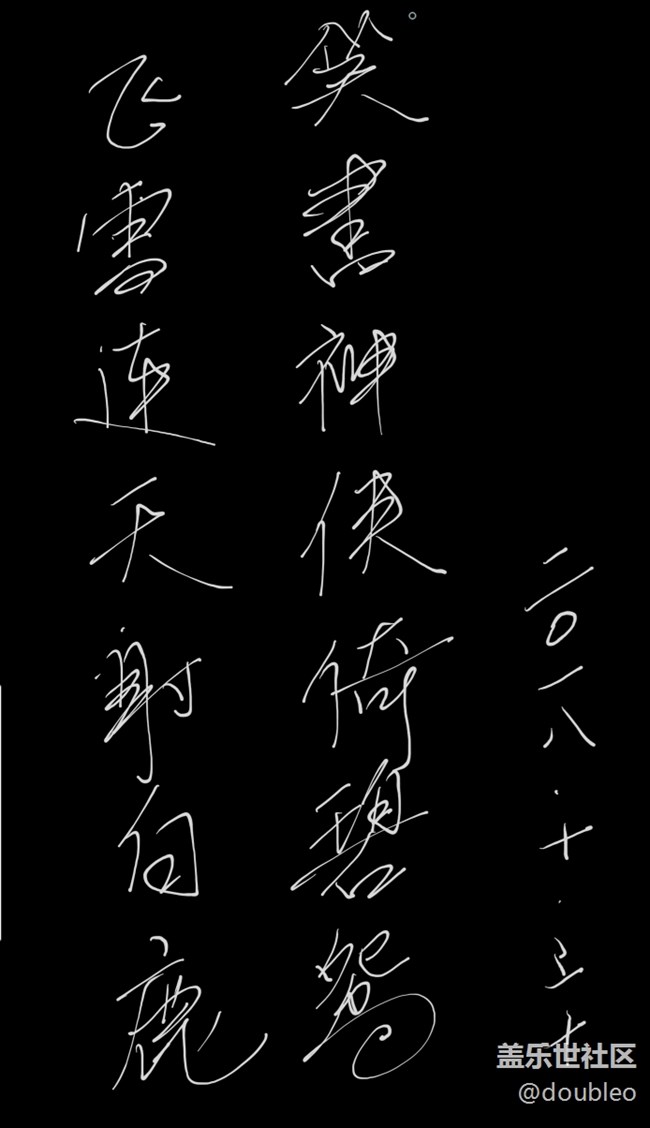 飞雪連天射白鹿
笑書神侠倚碧鸳
二〇一八.十.三十
盖乐世社区
@doubleo